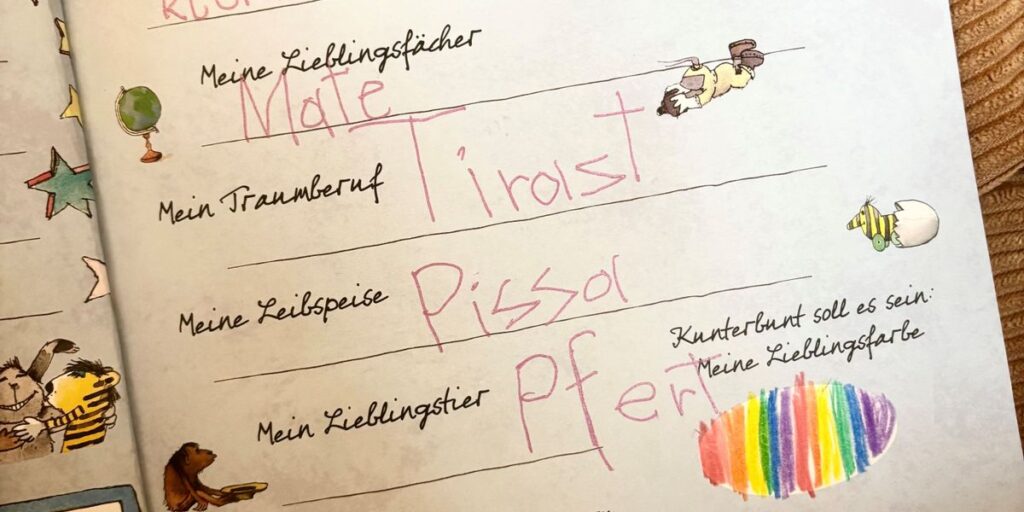 Meine Lieblingsfächer
Mate
Mein Traumberuf
Tirast
Meine Leibspeise
Pissa
Kunterbunt soll es sein:
Meine Lieblingsfarbe
Mein Lieblingstier
Pfert